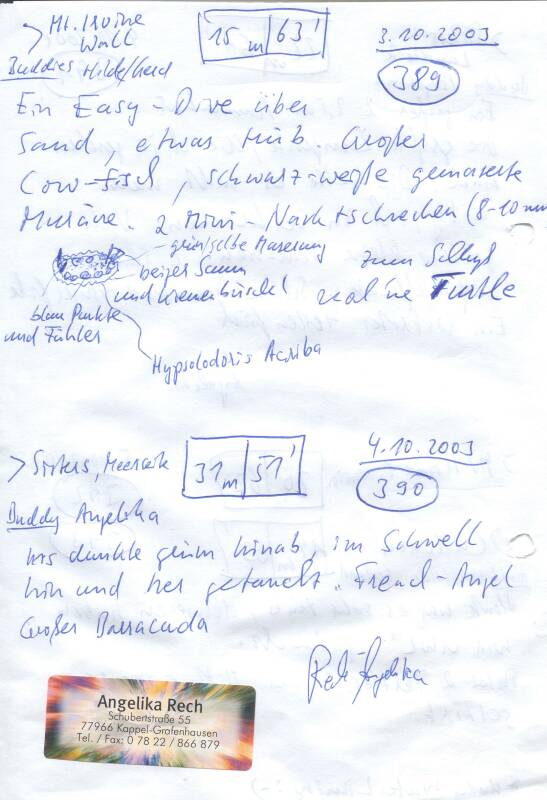 > Mt. Irvine Wall
15 m 63'
3.10.2003
Buddies Hilde/Gerd
389
Ein Easy-Dive über
Sand, etwas trüb. Großer
Cow-fisch, schwarz-weiße gemaserte
Muräne. 2 Mini-Nacktschnecken (8-10 mm
grün/gelbe Maserung
beiger Saum
und Kiemenbüschel
blaue Punkte
und Fühler
Hypsolodoris Acriba
zum Schluß
noch 'ne Turtle
> Sisters, Meerseite
31 m 51'
4.10.2003
390
Buddy Angelika
ins dunkle grün hinab, im Schwell
hin und her getaucht. French-Angel
Großer Barracuda
Rech Angelika
Angelika Rech
Schubertstraße 55
77966 Kappel-Grafenhausen
Tel. / Fax: 0 78 22 / 866 879